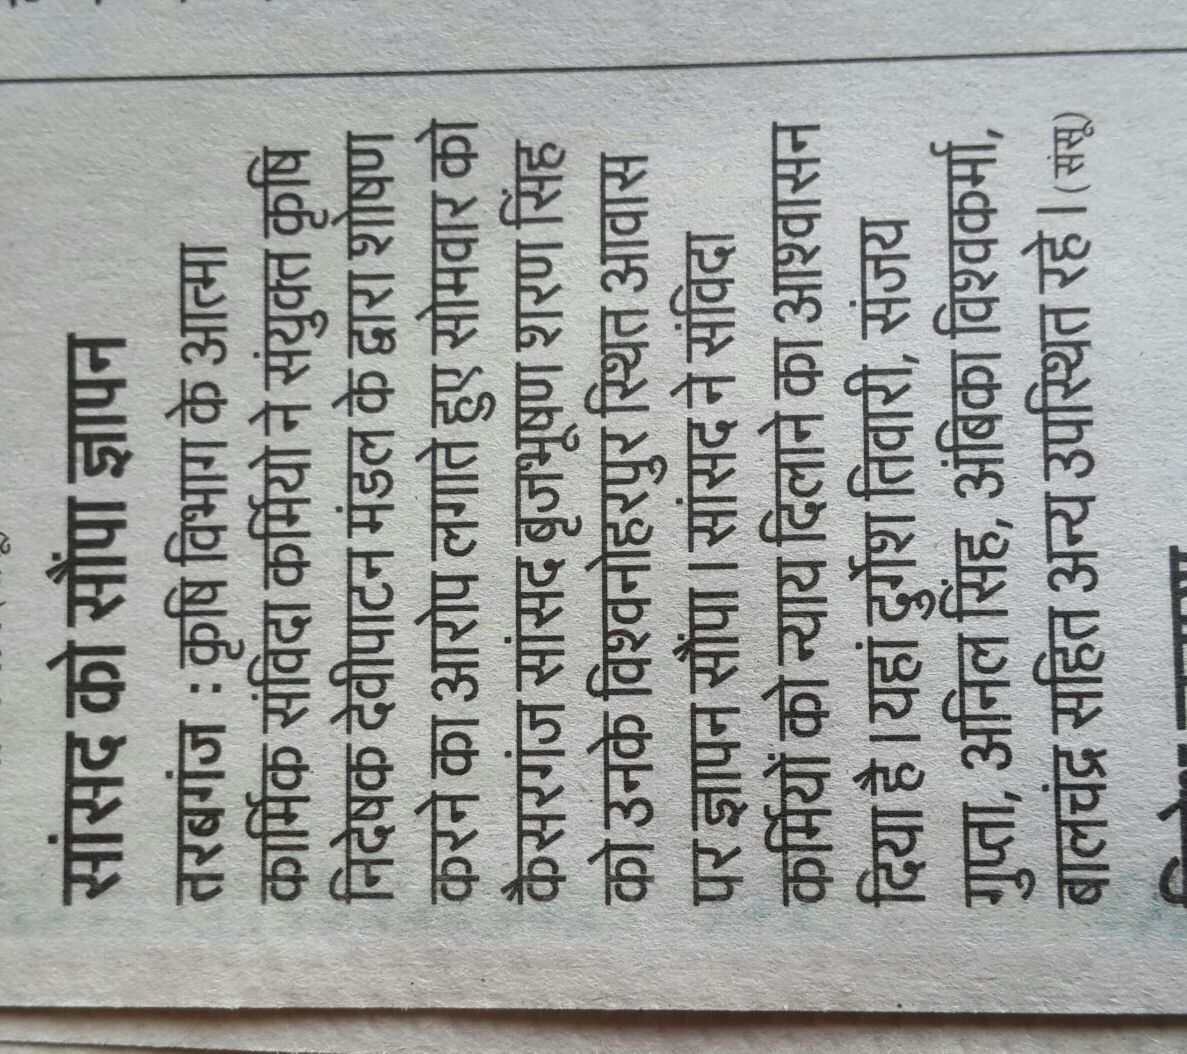 सांसद को सौंपा ज्ञापन
तरबगंज : कृषि विभाग के आत्मा
कार्मिक संविदा कर्मियो ने संयुक्त कृषि
निदेषक देवीपाटन मंडल के द्वारा शोषण
करने का आरोप लगाते हुए सोमवार को
कैसरगंज सांसद बृजभूषण शरण सिंह
को उनके विश्वनोहरपुर स्थित आवास
पर ज्ञापन सौंपा । सांसद ने संविदा
कर्मियों को न्याय दिलाने का आश्वासन
दिया है । यहां दुर्गेश तिवारी, संजय
गुप्ता, अनिल सिंह, अंबिका विश्वकर्मा,
बालचंद्र सहित अन्य उपस्थित रहे । (संसू)